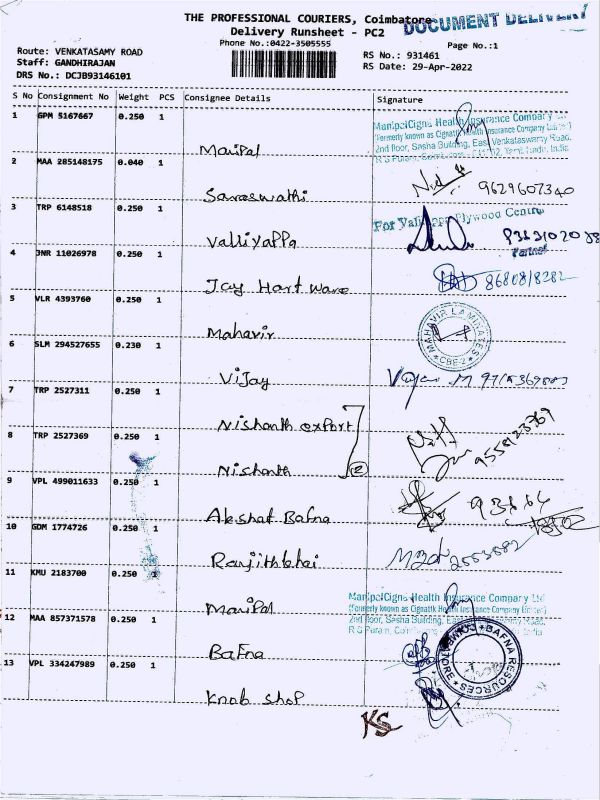 THE PROFESSIONAL COURIERS, Coimbatore
DOCUMENT DELIVERY
Delivery Runsheet - PC2
Phone No.:0422-3505555
Page No.:1
Route: VENKATASAMY ROAD
Staff: GANDHIRAJAN
DRS No.: DCJB93146101
RS No.: 931461
RS Date: 29-Apr-2022
S No Consignment No Weight PCS Consignee Details Signature
1 GPM 5167667 0.250 1
ManipalCigna Health Insurance Company
(formerly known as Cignattk Health Insurance Company Limited)
2nd floor, Sasha Building, East Venkataswamy Road,
R S Puram, Tamil Nadu, India
Manipal
2 MAA 285148175 0.040 1
Saraswathi
9629607340
3 TRP 6148518 0.250 1
For Valliappa Plywood Centre
Valliyappa
Partner
4 JNR 11026978 0.250 1
Jay Hart ware
5 VLR 4393760 0.250 1
Mahavir
MAHAVIR LAMINATES
CBE-2
6 SLM 294527655 0.230 1
Vijay
7 TRP 2527311 0.250 1
Nishanth export
8 TRP 2527369 0.250 1
Nishanth
(2)
9 VPL 499011633 0.250 1
Akshat Bafna
10 GDM 1774726 0.250 1
Ranjithbhai
11 KMU 2183700 0.250 1
ManipalCigna Health Insurance Company Ltd
(formerly known as Cignattk Health Insurance Company Limited)
2nd floor, Sasha Building, East
R S Puram,
Manipal
12 MAA 857371578 0.250 1
Bafna
BAFNA RESOURCES
COIMBATORE
13 VPL 334247989 0.250 1
Knob shop
KS